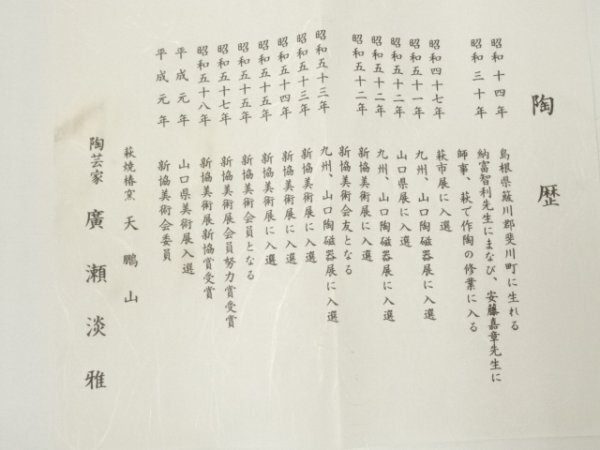 陶歴
昭和十四年 島根県簸川郡斐川町に生れる
昭和三十年 納富智利先生にまなび、安藤嘉章先生に
師事、萩で作陶の修業に入る
昭和四十七年 萩市展に入選
昭和五十一年 九州、山口陶磁器展に入選
昭和五十二年 山口県展に入選
昭和五十二年 九州、山口陶磁器展に入選
昭和五十二年 新協美術会友となる
昭和五十三年 九州、山口陶磁器展に入選
昭和五十三年 新協美術展に入選
昭和五十四年 新協美術展に入選
昭和五十五年 新協美術展に入選
昭和五十五年 新協美術会員となる
昭和五十七年 新協美術展会員努力賞受賞
昭和五十八年 新協美術展新協賞受賞
平成元年 山口県美術展入選
平成元年 新協美術会委員
萩焼椿窯 天鵬山
陶芸家 廣瀬淡雅